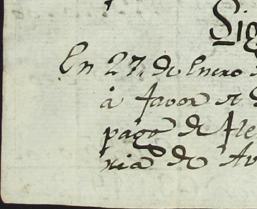 Sig
En 27, de Enero
à favor de
pago de fle
ria de Av